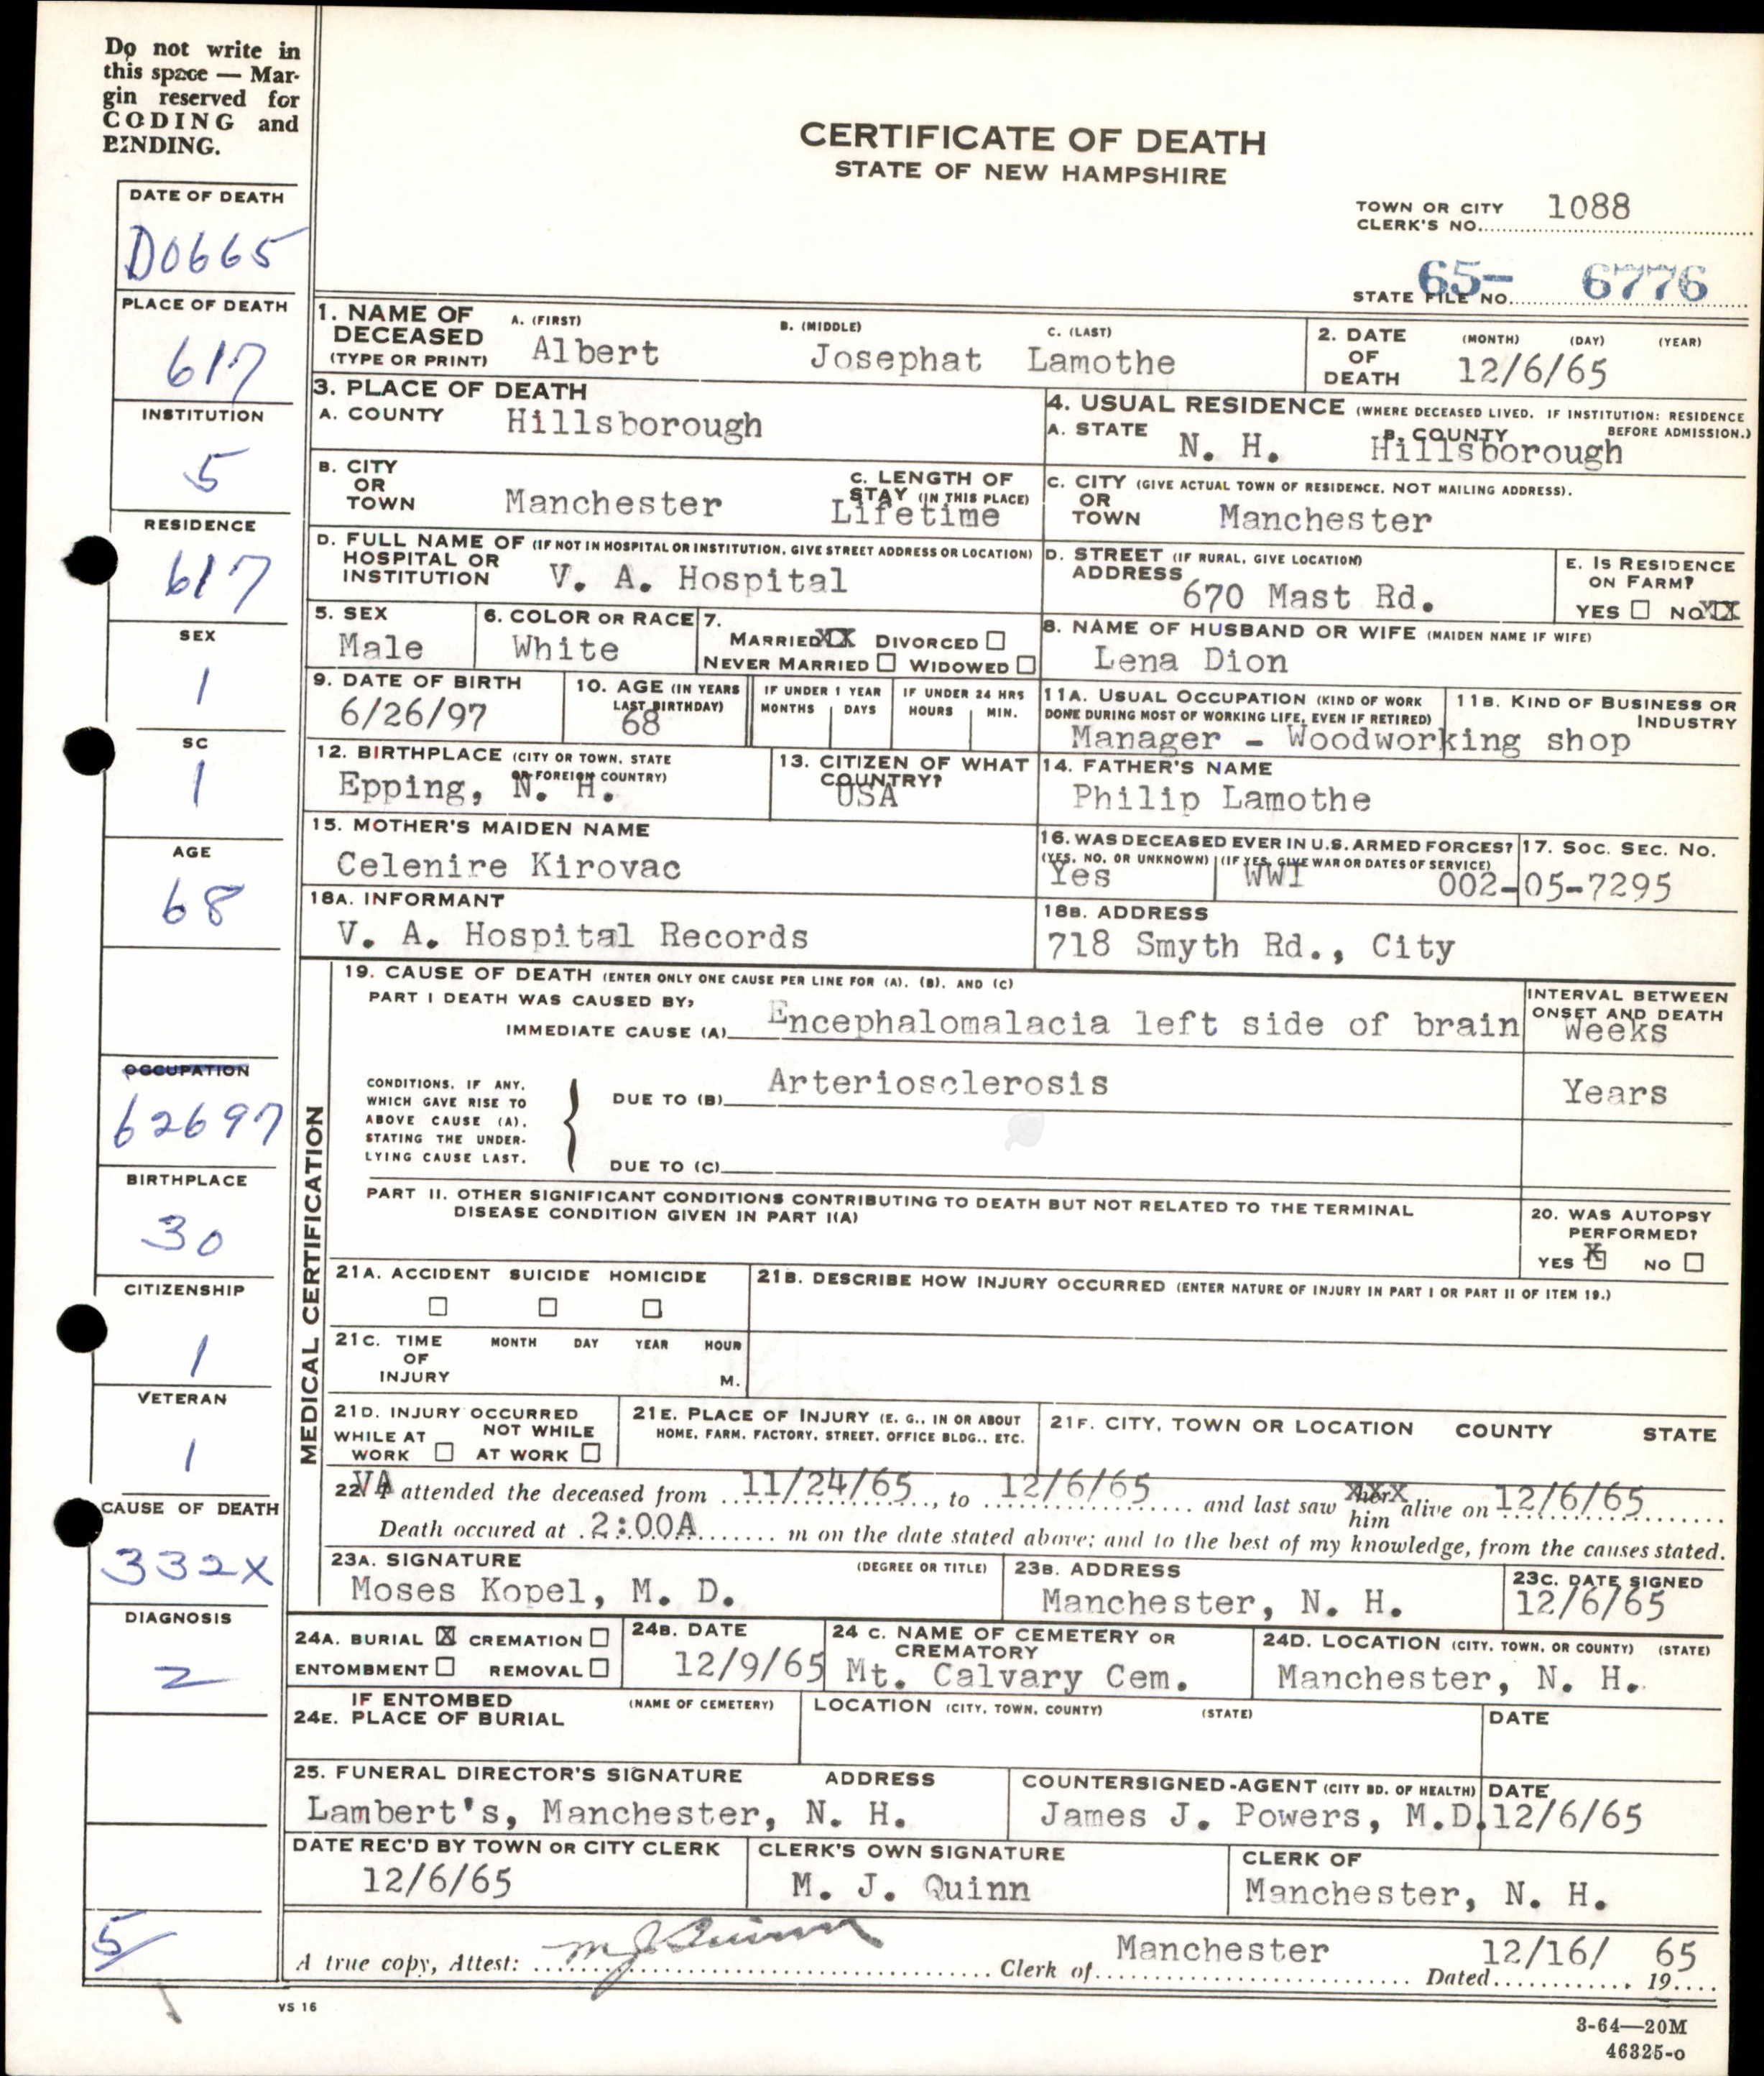 Do not write in
this space — Mar-
gin reserved for
CODING and
BINDING.
CERTIFICATE OF DEATH
STATE OF NEW HAMPSHIRE
TOWN OR CITY CLERK'S NO. 1088
STATE FILE NO. 65- 6776
DATE OF DEATH
D0665
PLACE OF DEATH
617
INSTITUTION
5
RESIDENCE
617
SEX
1
SC
1
AGE
68
OCCUPATION
62697
BIRTHPLACE
30
CITIZENSHIP
1
VETERAN
1
CAUSE OF DEATH
332X
DIAGNOSIS
2
5
1. NAME OF DECEASED (TYPE OR PRINT) A. (FIRST) B. (MIDDLE) C. (LAST)
Albert Josephat Lamothe
2. DATE OF DEATH (MONTH) (DAY) (YEAR)
12/6/65
3. PLACE OF DEATH
A. COUNTY Hillsborough
4. USUAL RESIDENCE (WHERE DECEASED LIVED. IF INSTITUTION: RESIDENCE BEFORE ADMISSION.)
A. STATE N. H. B. COUNTY Hillsborough
B. CITY OR TOWN Manchester
C. LENGTH OF STAY (IN THIS PLACE) Lifetime
C. CITY (GIVE ACTUAL TOWN OF RESIDENCE, NOT MAILING ADDRESS).
OR TOWN Manchester
D. FULL NAME OF (IF NOT IN HOSPITAL OR INSTITUTION, GIVE STREET ADDRESS OR LOCATION)
HOSPITAL OR INSTITUTION V. A. Hospital
D. STREET (IF RURAL, GIVE LOCATION)
ADDRESS 670 Mast Rd.
E. IS RESIDENCE ON FARM?
YES NO XX
5. SEX
Male
6. COLOR OR RACE
White
7. MARRIED XX DIVORCED
NEVER MARRIED WIDOWED
8. NAME OF HUSBAND OR WIFE (MAIDEN NAME IF WIFE)
Lena Dion
9. DATE OF BIRTH
6/26/97
10. AGE (IN YEARS LAST BIRTHDAY)
68
IF UNDER 1 YEAR
MONTHS DAYS
IF UNDER 24 HRS
HOURS MIN.
11A. USUAL OCCUPATION (KIND OF WORK DONE DURING MOST OF WORKING LIFE, EVEN IF RETIRED)
11B. KIND OF BUSINESS OR INDUSTRY
Manager - Woodworking shop
12. BIRTHPLACE (CITY OR TOWN, STATE OR FOREIGN COUNTRY)
Epping, N. H.
13. CITIZEN OF WHAT COUNTRY?
USA
14. FATHER'S NAME
Philip Lamothe
15. MOTHER'S MAIDEN NAME
Celenire Kirovac
16. WAS DECEASED EVER IN U.S. ARMED FORCES?
(YES, NO, OR UNKNOWN) (IF YES, GIVE WAR OR DATES OF SERVICE)
Yes WWI
17. SOC. SEC. NO.
002-05-7295
18A. INFORMANT
V. A. Hospital Records
18B. ADDRESS
718 Smyth Rd., City
MEDICAL CERTIFICATION
19. CAUSE OF DEATH (ENTER ONLY ONE CAUSE PER LINE FOR (A), (B), AND (C)
PART I DEATH WAS CAUSED BY:
IMMEDIATE CAUSE (A) Encephalomalacia left side of brain
INTERVAL BETWEEN ONSET AND DEATH
Weeks
CONDITIONS, IF ANY,
WHICH GAVE RISE TO
ABOVE CAUSE (A),
STATING THE UNDER-
LYING CAUSE LAST.
DUE TO (B) Arteriosclerosis
Years
DUE TO (C)
PART II. OTHER SIGNIFICANT CONDITIONS CONTRIBUTING TO DEATH BUT NOT RELATED TO THE TERMINAL
DISEASE CONDITION GIVEN IN PART I(A)
20. WAS AUTOPSY PERFORMED?
YES X NO
21A. ACCIDENT SUICIDE HOMICIDE
21B. DESCRIBE HOW INJURY OCCURRED (ENTER NATURE OF INJURY IN PART I OR PART II OF ITEM 19.)
21C. TIME OF INJURY MONTH DAY YEAR HOUR
M.
21D. INJURY OCCURRED
WHILE AT WORK NOT WHILE AT WORK
21E. PLACE OF INJURY (E. G., IN OR ABOUT
HOME, FARM, FACTORY, STREET, OFFICE BLDG., ETC.
21F. CITY, TOWN OR LOCATION COUNTY STATE
22. VA attended the deceased from 11/24/65, to 12/6/65 and last saw her him alive on 12/6/65
Death occured at 2:00A m on the date stated above; and to the best of my knowledge, from the causes stated.
23A. SIGNATURE (DEGREE OR TITLE)
Moses Kopel, M. D.
23B. ADDRESS
Manchester, N. H.
23C. DATE SIGNED
12/6/65
24A. BURIAL X CREMATION
ENTOMBMENT REMOVAL
24B. DATE
12/9/65
24 C. NAME OF CEMETERY OR CREMATORY
Mt. Calvary Cem.
24D. LOCATION (CITY, TOWN, OR COUNTY) (STATE)
Manchester, N. H.
24E. IF ENTOMBED PLACE OF BURIAL (NAME OF CEMETERY) LOCATION (CITY, TOWN, COUNTY) (STATE) DATE
25. FUNERAL DIRECTOR'S SIGNATURE ADDRESS
Lambert's, Manchester, N. H.
COUNTERSIGNED-AGENT (CITY BD. OF HEALTH)
James J. Powers, M.D.
DATE
12/6/65
DATE REC'D BY TOWN OR CITY CLERK
12/6/65
CLERK'S OWN SIGNATURE
M. J. Quinn
CLERK OF
Manchester, N. H.
A true copy, Attest: M J Quinn Clerk of Manchester Dated 12/16/ 1965
VS 16
3-64—20M
46325-o